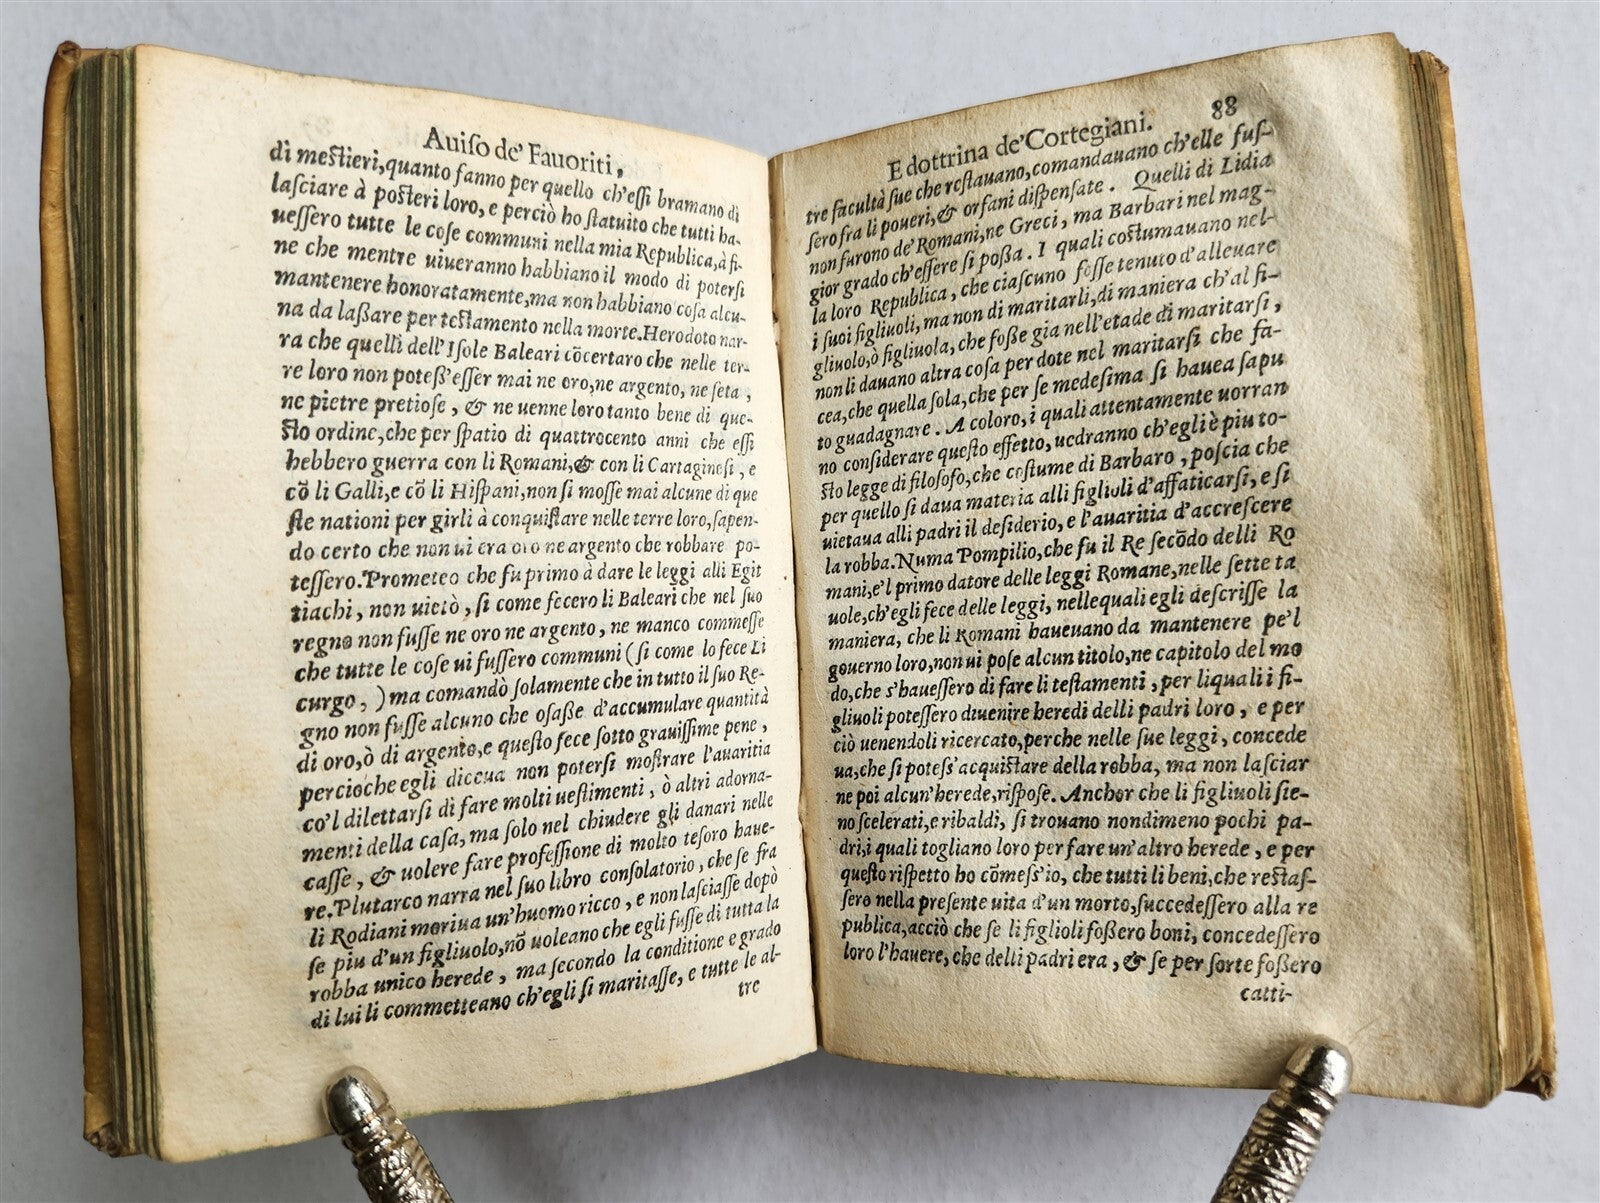 Auiſo de' Fauoriti,
di meſtieri,quanto fanno per quello ch'eſſi bramano di
laſciare à poſteri loro,e perciò ho ſtatuito che tutti ha-
ueſſero tutte le coſe communi nella mia Republica,à fi-
ne che mentre uiueranno habbiano il modo di poterſi
mantenere honoratamente,ma non habbiano coſa alcu-
na da laßare per teſtamento nella morte.Herodoto nar-
ra che quelli dell'Iſole Baleari cõcertaro che nelle ter-
re loro non poteß'eſſer mai ne oro,ne argento, ne ſeta ,
ne pietre pretioſe , & ne uenne loro tanto bene di que-
ſto ordine,che per ſpatio di quattrocento anni che eſſi
hebbero guerra con li Romani,& con li Cartagineſi , e
cõ li Galli,e cõ li Hiſpani,non ſi moſſe mai alcune di que
ſte nationi per girli à conquiſtare nelle terre loro,ſapen-
do certo che non ui era oro ne argento che robbare po-
teſſero.Prometeo che fu primo à dare le leggi alli Egit
tiachi, non uietò , ſi come fecero li Baleari che nel ſuo
regno non fuſſe ne oro ne argento , ne manco commeſſe
che tutte le coſe ui fuſſero communi ( ſi come lo fece Li
curgo , ) ma comandò ſolamente che in tutto il ſuo Re-
gno non fuſſe alcuno che oſaße d'accumulare quantità
di oro,ò di argento,e queſto fece ſotto grauiſſime pene ,
percioche egli diceua non poterſi moſtrare l'auaritia
co'l dilettarſi di fare molti ueſtimenti , ò altri adorna-
menti della caſa, ma ſolo nel chiudere gli danari nelle
caſſe , & uolere fare profeſſione di molto teſoro haue-
re.Plutarco narra nel ſuo libro conſolatorio , che ſe fra
li Rodiani moriua un'huomo ricco , e non laſciaſſe dopò
ſe piu d'un figliuolo,nõ uoleano che egli fuſſe di tutta la
robba unico herede , ma ſecondo la conditione e grado
di lui li commetteano ch'egli ſi maritaſſe, e tutte le al-
tre
E dottrina de' Cortegiani.
88
tre facultà ſue che reſtauano,comandauano ch'elle fuſ-
ſero fra li poueri,& orfani diſpenſate . Quelli di Lidia
non furono de' Romani,ne Greci, ma Barbari nel mag-
gior grado ch'eſſere ſi poßa . I quali coſtumauano nel-
la loro Republica, che ciaſcuno foſſe tenuto d'alleuare
i ſuoi figliuoli, ma non di maritarli,di maniera ch'al fi-
gliuolo,ò figliuola, che foße gia nell'etade di maritarſi ,
non li dauano altra coſa per dote nel maritarſi che fa-
cea,che quella ſola,che per ſe medeſima ſi hauea ſapu
to guadagnare . A coloro, i quali attentamente uorran
no conſiderare queſto effetto, uedranno ch'egli è piu to-
ſto legge di filoſofo,che coſtume di Barbaro , poſcia che
per quello ſi daua materia alli figlioli d'affaticarſi, e ſi
uietaua alli padri il deſiderio, e l'auaritia d'accreſcere
la robba.Numa Pompilio,che fu il Re ſecõdo delli Ro
mani,e'l primo datore delle leggi Romane,nelle ſette ta
uole,ch'egli fece delle leggi, nelle quali egli deſcriſſe la
maniera, che li Romani haueuano da mantenere pe'l
gouerno loro,non ui poſe alcun titolo,ne capitolo del mo
do,che s'haueſſero di fare li teſtamenti , per li quali i fi-
gliuoli poteſſero diuenire heredi delli padri loro , e per
ciò uenendoli ricercato,perche nelle ſue leggi , concede
ua,che ſi poteſs'acquiſtare della robba, ma non laſciar
ne poi alcun'herede,riſpoſe. Anchor che li figliuoli ſie-
no ſcelerati,e ribaldi, ſi trouano nondimeno pochi pa-
dri,i quali togliano loro per fare un'altro herede , e per
queſto riſpetto ho cõmeſs'io, che tutti li beni,che reſtaſ-
ſero nella preſente uita d'un morto,ſuccedeſſero alla re
publica,acciò che ſe li figlioli foßero boni, concedeſſero
loro l'hauere, che delli padri era , & ſe per ſorte foßero
catti-